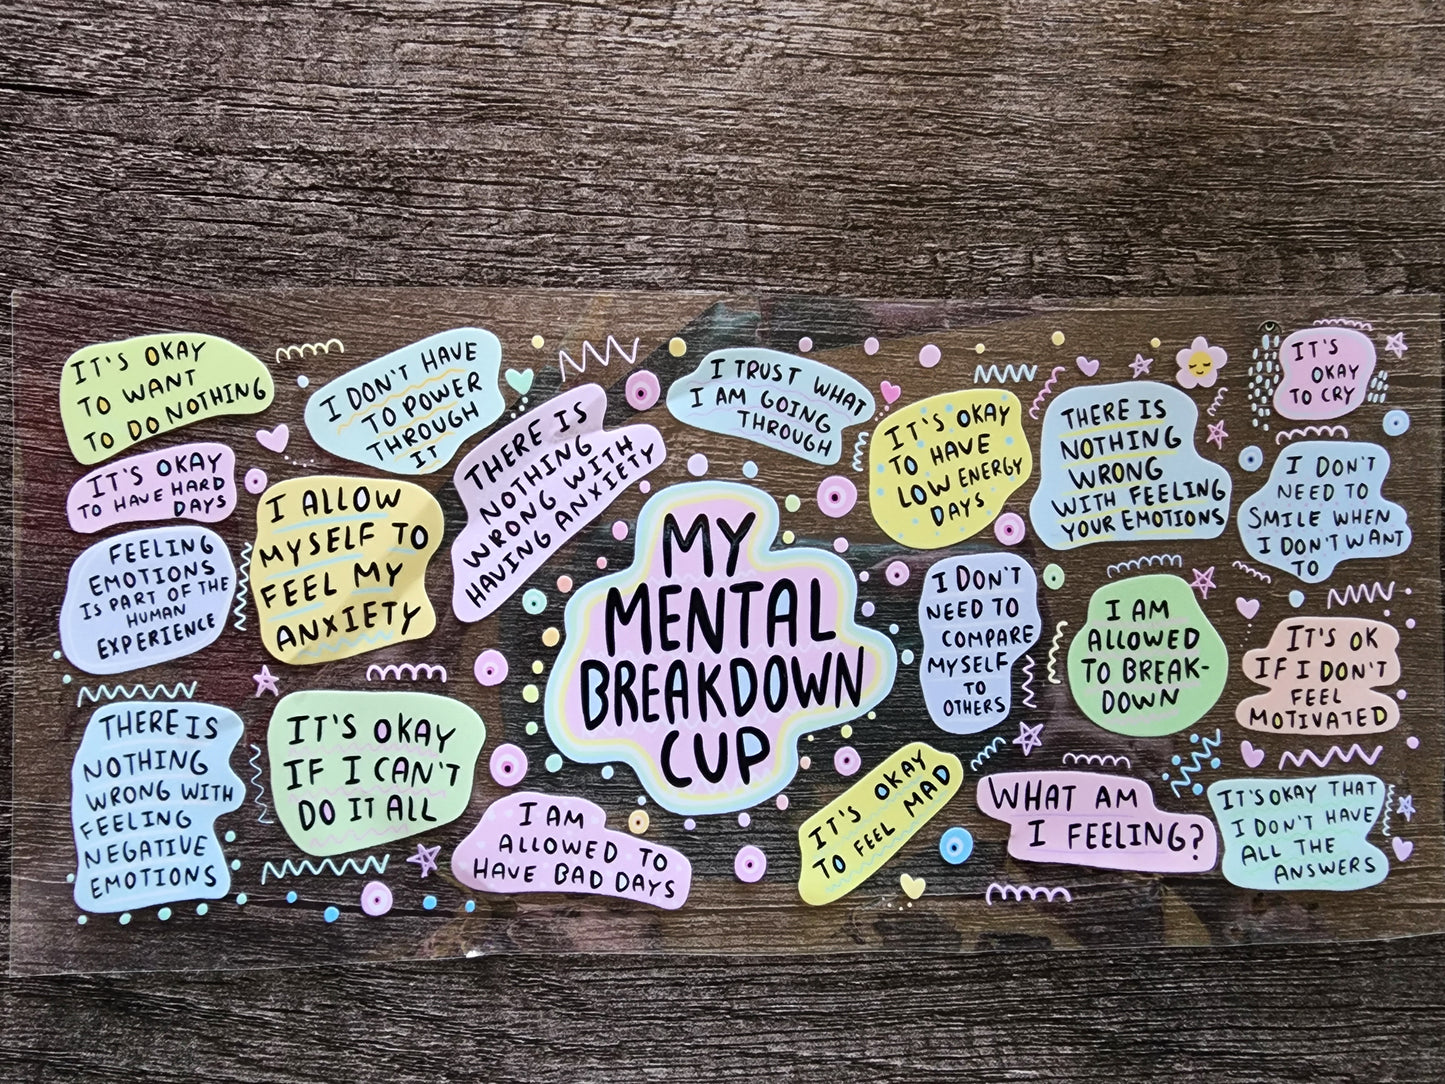 IT'S OKAY
TO WANT
TO DO NOTHING
I DON'T HAVE
TO POWER
THROUGH
IT
THERE IS
NOTHING
WRONG WITH
HAVING ANXIETY
I TRUST WHAT
I AM GOING
THROUGH
IT'S OKAY
TO HAVE
LOW ENERGY
DAYS
THERE IS
NOTHING
WRONG
WITH FEELING
YOUR EMOTIONS
IT'S
OKAY
TO CRY
IT'S OKAY
TO HAVE HARD
DAYS
I ALLOW
MYSELF TO
FEEL MY
ANXIETY
I DON'T
NEED TO
SMILE WHEN
I DON'T WANT
TO
FEELING
EMOTIONS
IS PART OF THE
HUMAN
EXPERIENCE
MY
MENTAL
BREAKDOWN
CUP
I DON'T
NEED TO
COMPARE
MYSELF
TO
OTHERS
I AM
ALLOWED
TO BREAK-
DOWN
IT'S OK
IF I DON'T
FEEL
MOTIVATED
THERE IS
NOTHING
WRONG WITH
FEELING
NEGATIVE
EMOTIONS
IT'S OKAY
IF I CAN'T
DO IT ALL
I AM
ALLOWED TO
HAVE BAD DAYS
IT'S OKAY
TO FEEL MAD
WHAT AM
I FEELING?
IT'S OKAY THAT
I DON'T HAVE
ALL THE
ANSWERS